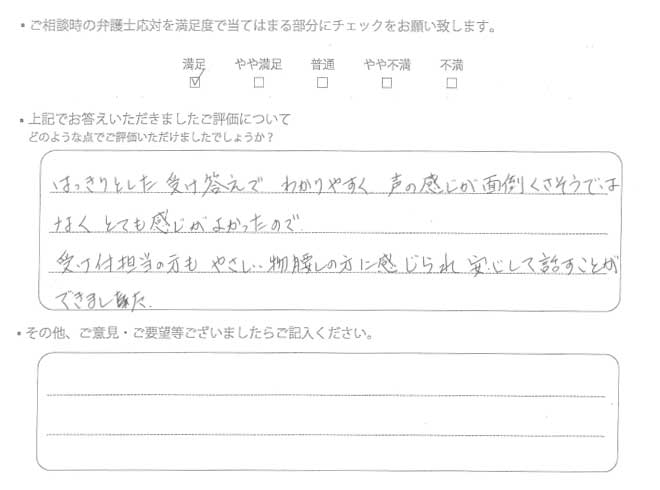 ・ご相談時の弁護士応対を満足度で当てはまる部分にチェックをお願い致します。
満足 やや満足 普通 やや不満 不満
☑ □ □ □ □
・上記でお答えいただきましたご評価について
どのような点でご評価いただけましたでしょうか？
はっきりとした受け答えで わかりやすく 声の感じが面倒くさそうでは
なく とても感じがよかったので
受け付担当の方も やさしい物腰しの方に感じられ 安心して話すことが
できました.
・その他、ご意見・ご要望等ございましたらご記入ください。